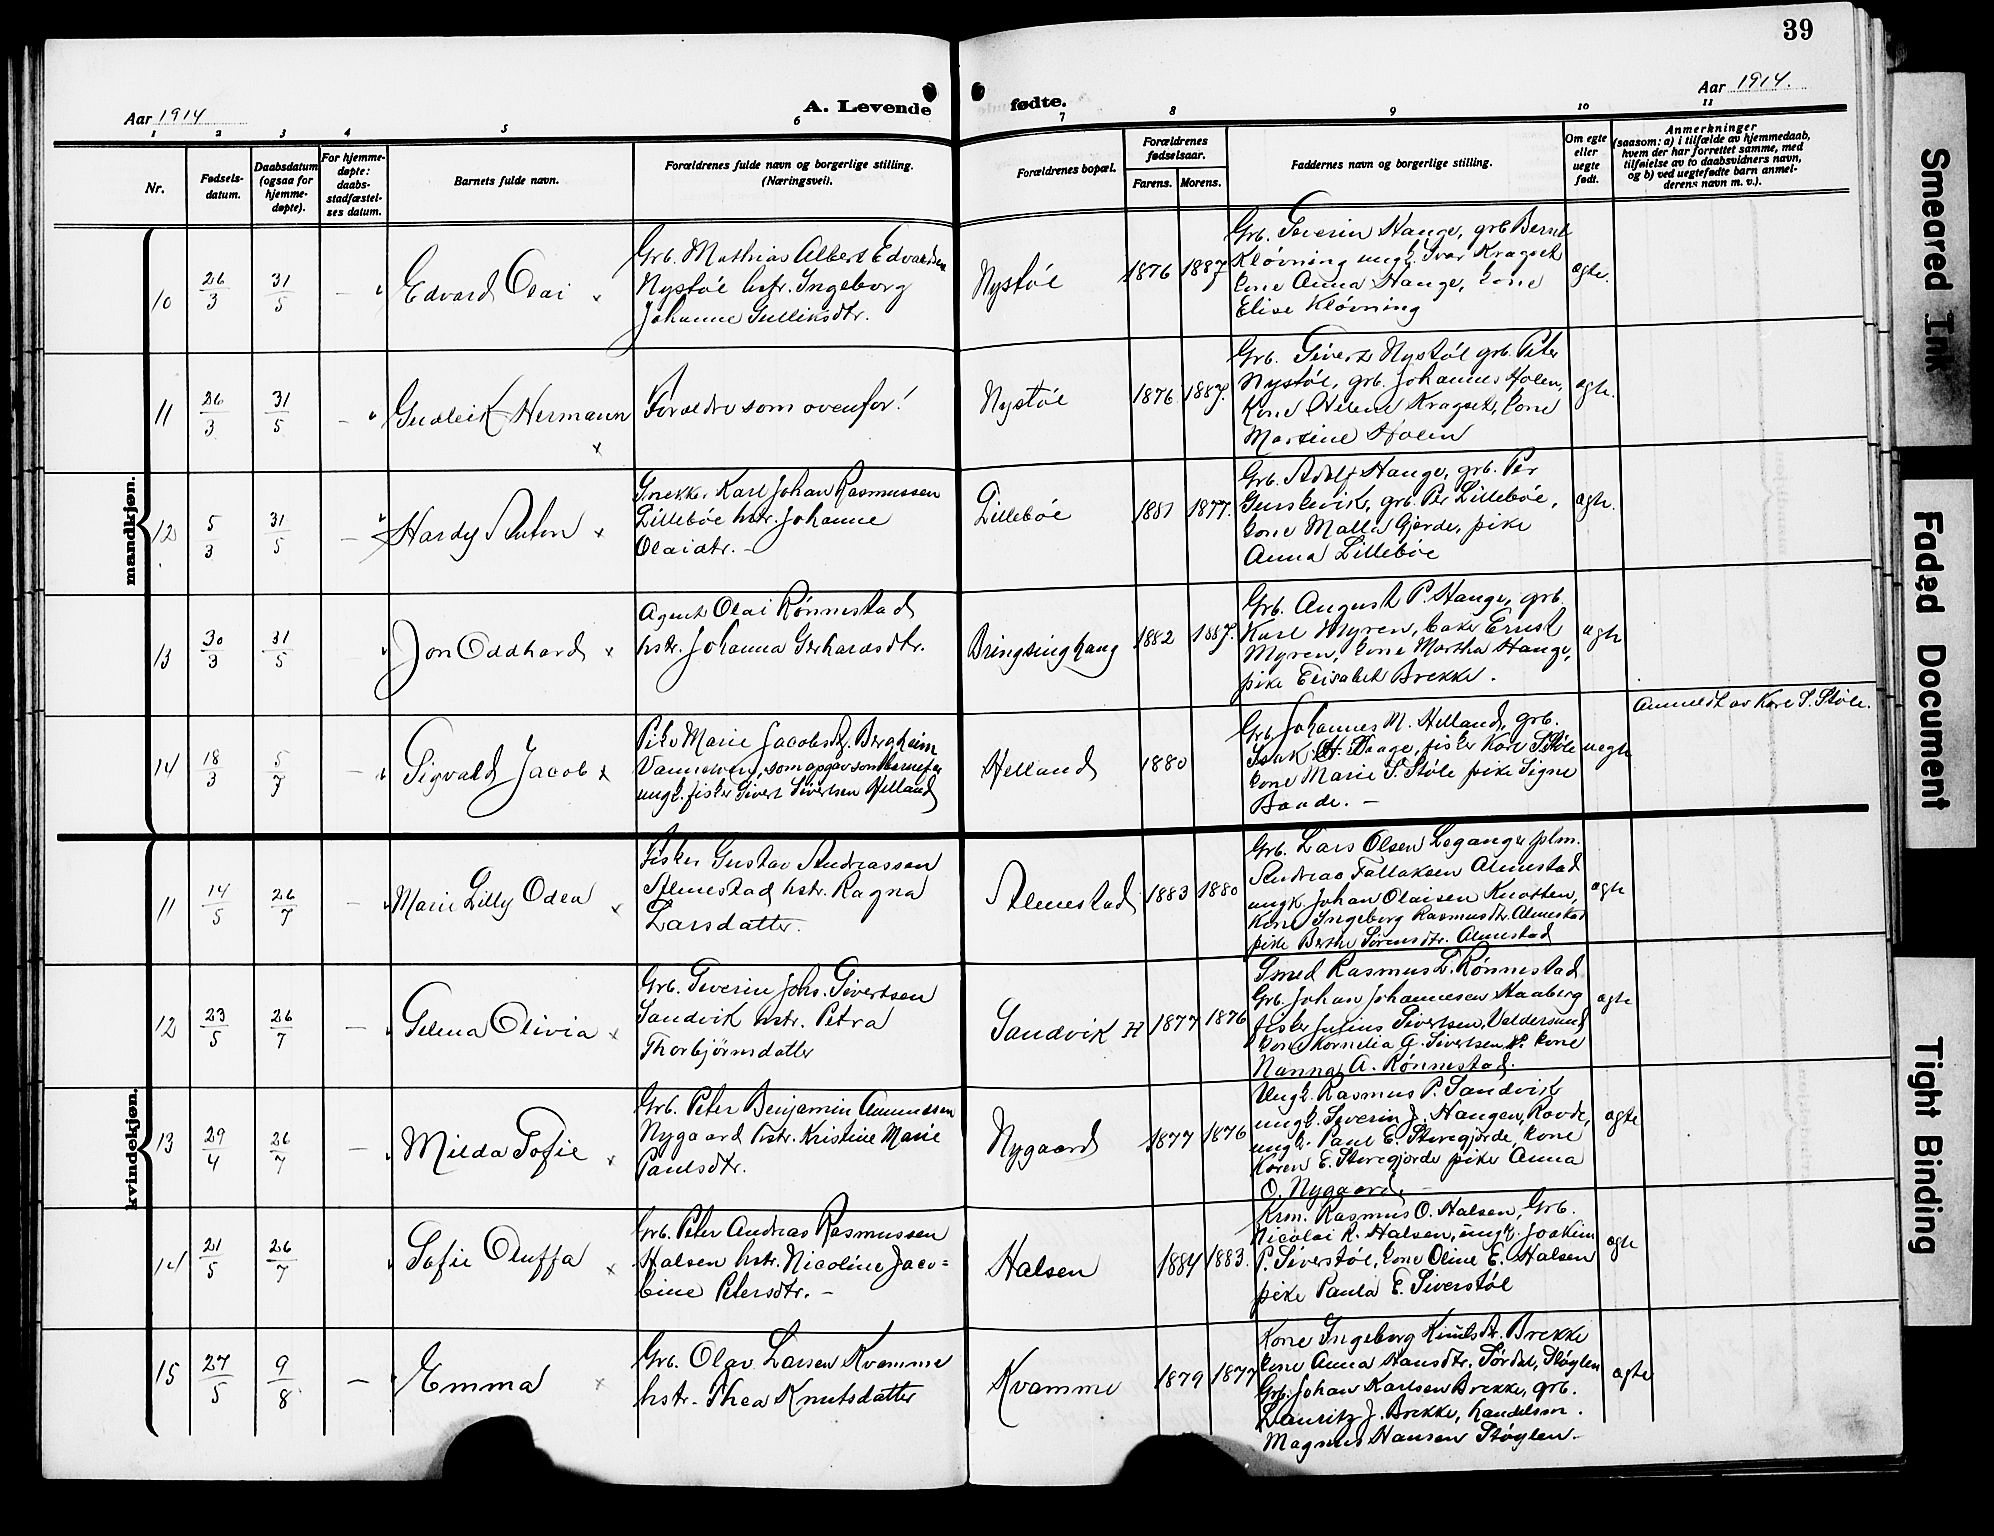 39
Aar 1914
A. Levende
fødte.
Aar 1914.
1 2 3 4 5 6 7 8 9 10 11
Nr.
Fødsels-
datum.
Daabsdatum
(ogsaa for
hjemme-
døpte).
For hjemme-
døpte:
daabs-
stadfæstel-
ses datum.
Barnets fulde navn.
Forældrenes fulde navn og borgerlige stilling.
(Næringsvei).
Forældrenes bopæl.
Forældrenes
fødselsaar.
Farens. Morens.
Faddernes navn og borgerlige stilling.
Om egte
eller
uegte
født.
Anmerkninger
(saasom: a) i tilfælde av hjemmedaab,
hvem der har forrettet samme, med
tilføielse av to daabsvidners navn,
og b) ved uegtefødte barn anmel-
derens navn m. v.).
mandkjøn.
10
26/3
31/5
—
Edvard Olai ×
Grb. Mathias Albert Edvardsen
Nystøl hstr. Ingeborg
Johanne Gulliksdtr.
Nystøl
1876 1887
Grb. Severin Hauge, grb Bernt
Kløvning ungk. Ivar Kragset
kone Anna Hauge, kone
Elise Kløvning
egte.
11
26/3
31/5
—
Gudleik Hermann
×
Forældre som ovenfor!
Nystøl
1876 1887.
Grb. Sivert Nystøl grb. Peter
Nystøl, grb. Johannes Holen,
Kone Helene Kragset, kone
Martine Holen
egte.
12
5/3
31/5
—
Hardy Anton ×
Snekker Karl Johan Rasmussen
Lillebøe hstr. Johanne
Olaidtr. —
Lillebøe
1881 1877.
Grb. Adolf Hauge, grb. Per
Gurskevik, grb. Per Lillebøe,
kone Malla Gjerde, pike
Anna Lillebøe
egte.
13
30/3
31/5
Jon Oddhard ×
Agent Olai Rønnestad
hstr. Johanna Gerhardsdtr.
Bringsinghaug
1882 1887.
Grb. August P. Hauge, grb.
Karl Myren, baker Ernst
Myren, kone Martha Hauge,
pike Elisabet Brekke.
egte
14
18/3
5/7
—
Sigvald Jacob ×
Pike Marie Jacobsdt. Bergheim
Vannelven, som opgav som barnefar
ungk. fisker Sivert Sivertsen Helland
Helland
1880
Grb. Johannes M. Helland, grb.
Isak H. Haage, fisker Karl S. Støle
kone Marie S. Støle pike Signe
Baade. —
uegte
Anmeldt av Karl S. Støle.
kvindekjøn.
11
14/5
26/7
—
Marie Lilly Odea ×
Fisker Gustav Andreassen
Almestad hstr. Ragna
Larsdatter.
Almestad
1883 1880
Grb. Lars Olsen Leganger plm.
Andreas Fallaksen Almestad
ungk. Johan Olaisen Knotten,
Kone Ingeborg Rasmusdtr. Almestad
pike Berthe Sørensdtr. Almestad
egte
12
23/5
26/7
—
Selma Olivia ×
Grb. Severin Johs. Sivertsen
Sandvik hstr. Petra
Thorbjørnsdatter
Sandvik H
1877 1876
Smed Rasmus L. Rønnestad
Grb. Johan Johannesen Haaberg
fisker Julius Sivertsen, Valdersund
kone Kornelia G. Sivertsen kone
Nanna A. Rønnestad.
egte
13
29/4
26/7
—
Milda Sofie ×
Grb. Peter Benjamin Amundsen
Nygaard hstr. Kristine Marie
Paulsdtr.
Nygaard
1877 1876
Ungk. Rasmus P. Sandvik
ungk. Severin J. Haugen, Rovde,
ungk. Paul E. Storegjerde, kone
Karen E. Storegjerde pike Anna
O. Nygaard —
egte
14
21/5
26/7
Sofie Oluffa ×
Grb. Peter Andreas Rasmussen
Halsen hstr. Nicoline Jaco=
bine Petersdtr. —
Halsen
1884 1883.
Krm. Rasmus O. Halsen, Grb.
Nicolai R. Halsen, ungk. Joakim
P. Siverstøl, kone Oline E. Halsen
pike Paula E. Siverstøl
egte
15
27/5
9/8
—
Emma ×
Grb. Olav Larsen Kvamme
hstr. Thea Knutsdatter
Kvamme
1879 1877
Kone Ingeborg Knutsdt. Brekke
kone Anna Hansdtr. Sørdal, Støylen
Grb. Johan Karlsen Brekke, grb.
Lauritz J. Brekke, handelsm.
Magnus Hansen Støylen.
egte
Smeared Ink
Faded Document
Tight Binding